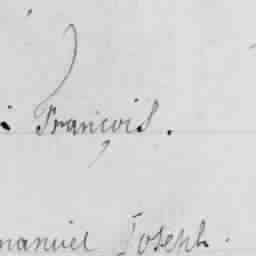 François.
manuel Joseph.